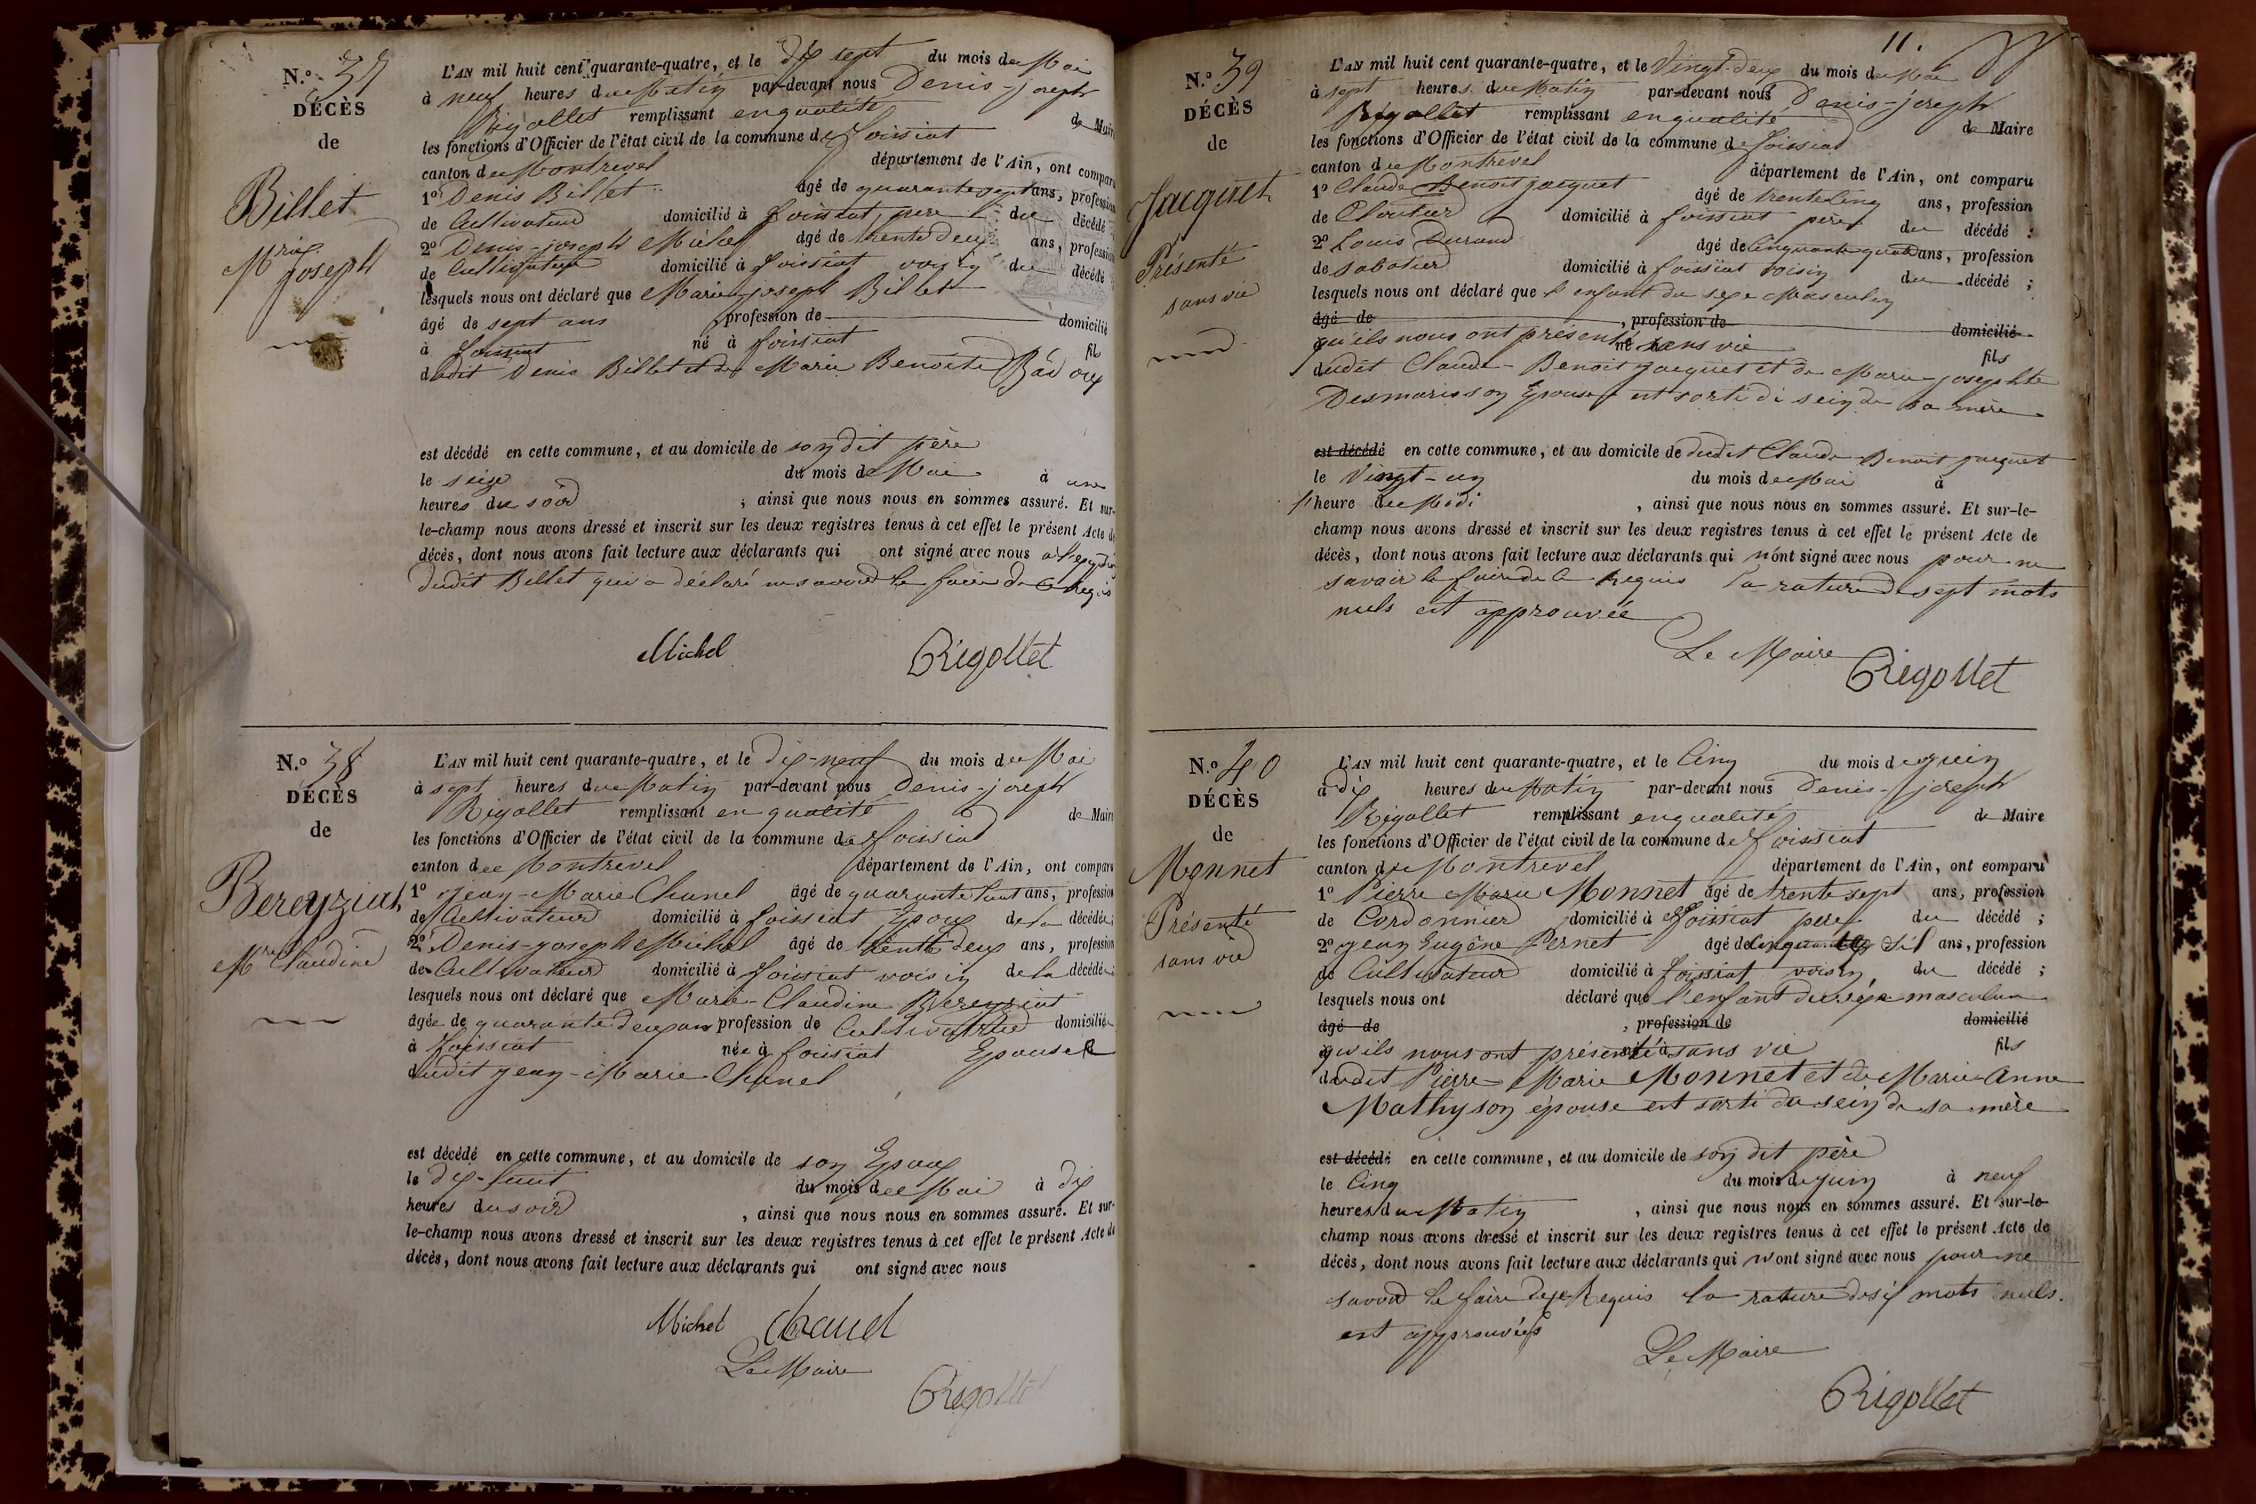 N.o 37
DÉCÈS
de
Billet
Mrie
joseph
L'AN mil huit cent quarante-quatre, et le dix sept du mois de Mai
à neuf heures du Matin par-devant nous Denis-joseph
Rigollet remplissant en qualité de Maire
les fonctions d'Officier de l'état civil de la commune de foissiat
canton de Montrevel département de l'Ain, ont comparu
1o Denis Billet âgé de quarante sept ans, profession
de Cultivateur domicilié à foissiat père du décédé
2o Denis-joseph Michel âgé de trente deux ans, profession
de Cultivateur domicilié à foissiat voisin du décédé
lesquels nous ont déclaré que Marie-joseph Billet
âgé de sept ans profession de domicilié
à foissiat né à foissiat fils
dudit Denis Billet et de Marie Benoite Badoux
est décédé en cette commune, et au domicile de son dit père
le seize du mois de Mai à une
heures du soir ; ainsi que nous nous en sommes assuré. Et sur-
le-champ nous avons dressé et inscrit sur les deux registres tenus à cet effet le présent Acte de
décès, dont nous avons fait lecture aux déclarants qui ont signé avec nous
dudit Billet qui a déclaré ne savoir le faire de ce Requis
Michel Rigollet
N.o 38
DÉCÈS
de
Bereyziat
Mrie Claudine
L'AN mil huit cent quarante-quatre, et le dix-neuf du mois de Mai
à sept heures du Matin par-devant nous Denis-joseph
Rigollet remplissant en qualité de Maire
les fonctions d'Officier de l'état civil de la commune de foissiat
canton de Montrevel département de l'Ain, ont comparu
1o jean-Marie Chanel âgé de quarante huit ans, profession
de Cultivateur domicilié à foissiat Epoux de la décédée
2o Denis-joseph Michel âgé de trente deux ans, profession
de Cultivateur domicilié à foissiat voisin de la décédée
lesquels nous ont déclaré que Marie-Claudine Bereyziat
âgée de quarante deux ans profession de Cultivatrice domiciliée
à foissiat née à foissiat Epouse
dudit jean-Marie Chanel
est décédé en cette commune, et au domicile de son Epoux
le dix-huit du mois de Mai à dix
heures du soir , ainsi que nous nous en sommes assuré. Et sur-
le-champ nous avons dressé et inscrit sur les deux registres tenus à cet effet le présent Acte de
décès, dont nous avons fait lecture aux déclarants qui ont signé avec nous
Michel Chanel
Le Maire
Rigollet
11.
N.o 39
DÉCÈS
de
Jacquet
Présenté
sans vie
L'AN mil huit cent quarante-quatre, et le Vingt-deux du mois de Mai
à sept heures du Matin par-devant nous Denis-joseph
Rigollet remplissant en qualité de Maire
les fonctions d'Officier de l'état civil de la commune de foissiat
canton de Montrevel département de l'Ain, ont comparu
1o Claude Benoit jacquet âgé de trente Cinq ans, profession
de Cloutier domicilié à foissiat père du décédé ;
2o Louis Durand âgé de Cinquante quatre ans, profession
de sabotier domicilié à foissiat voisin du décédé ;
lesquels nous ont déclaré que l'enfant du sexe Masculin
âgé de , profession de domicilié
qu'ils nous ont présenté sans vie fils
dudit Claude-Benoit jacquet et de Marie-josephte
Desmaris son Epouse est sorti di sein de sa mère
est décédé en cette commune, et au domicile de dudit Claude Benoit jacquet
le Vingt-un du mois de Mai à
heure de Midi , ainsi que nous nous en sommes assuré. Et sur-le-
champ nous avons dressé et inscrit sur les deux registres tenus à cet effet le présent Acte de
décès, dont nous avons fait lecture aux déclarants qui n'ont signé avec nous pour ne
savoir le faire de ce Requis la rature de sept mots
nuls est approuvée
Le Maire Rigollet
N.o 40
DÉCÈS
de
Monnet
Présenté
sans vie
L'AN mil huit cent quarante-quatre, et le Cinq du mois de juin
à dix heures du Matin par-devant nous Denis-joseph
Rigollet remplissant en qualité de Maire
les fonctions d'Officier de l'état civil de la commune de foissiat
canton de Montrevel département de l'Ain, ont comparu
1o Pierre Marie Monnet âgé de trente sept ans, profession
de Cordonnier domicilié à foissiat père du décédé ;
2o jean Eugène Pernet âgé de ans, profession
de Cultivateur domicilié à foissiat voisin du décédé ;
lesquels nous ont déclaré que l'enfant du sexe masculin
âgé de , profession de domicilié
qu'ils nous ont présenté sans vie fils
dudit Pierre Marie Monnet et de Marie-Anne
Mathy son épouse est sorti du sein de sa mère
est décédé en cette commune, et au domicile de son dit père
le Cinq du mois de juin à neuf
heures du Matin , ainsi que nous nous en sommes assuré. Et sur-le-
champ nous avons dressé et inscrit sur les deux registres tenus à cet effet le présent Acte de
décès, dont nous avons fait lecture aux déclarants qui n'ont signé avec nous pour ne
savoir le faire de ce Requis la rature de six mots nuls
est approuvée
Le Maire
Rigollet